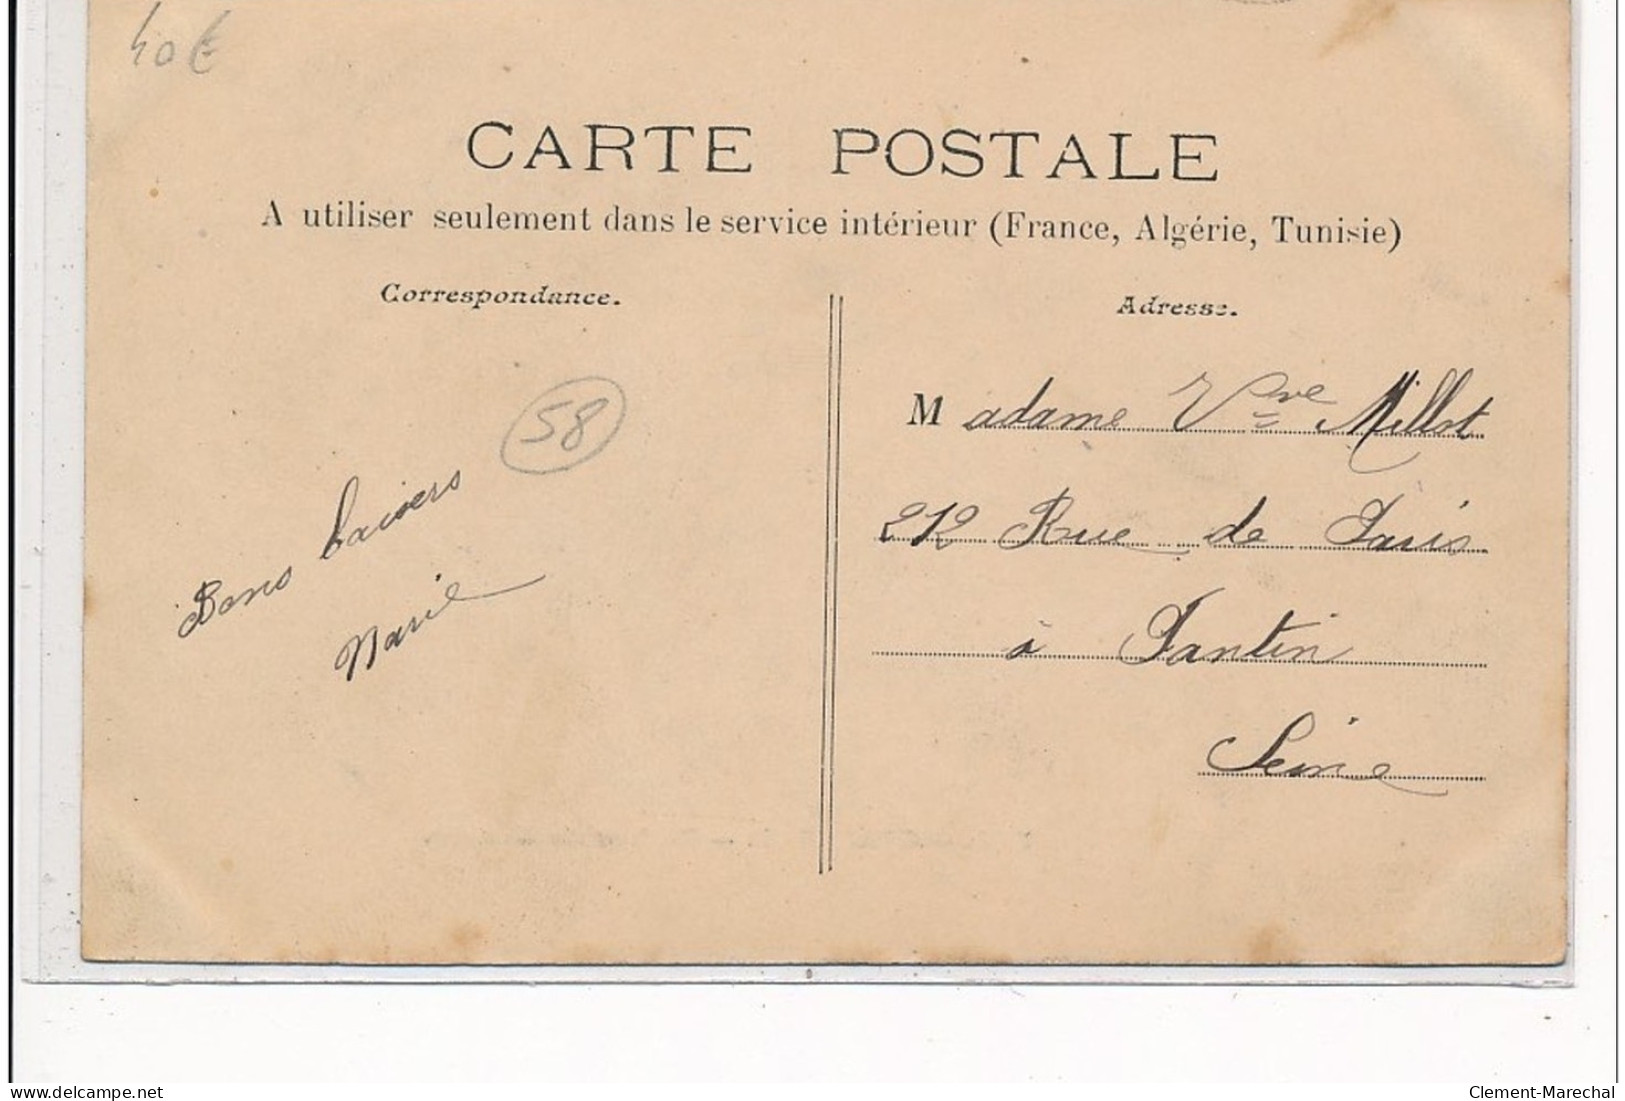 40€
CARTE POSTALE
A utiliser seulement dans le service intérieur (France, Algérie, Tunisie)
Correspondance.
Adresse.
58
Bons baisers
Marie
Madame Vve Millot
212 Rue de Paris
à Pantin
Seine
delcampe.net
Clement-Marechal